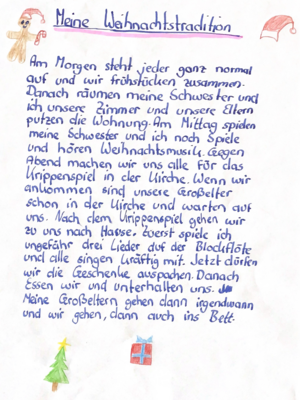 Meine Weihnachtstradition
Am Morgen steht jeder ganz normal
auf und wir frühstücken zusammen.
Danach räumen meine Schwester und
ich unsere Zimmer und unsere Eltern
putzen die Wohnung. Am Mittag spielen
meine Schwester und ich noch Spiele
und hören Weihnachtsmusik. Gegen
Abend machen wir uns alle für das
Krippenspiel in der Kirche. Wenn wir
ankommen sind unsere Großelter
schon in der Kirche und warten auf
uns. Nach dem Krippenspiel gehen wir
zu uns nach Hause. Zuerst spiele ich
ungefähr drei Lieder auf der Blockflöte
und alle singen kräftig mit. Jetzt dürfen
wir die Geschenke auspacken. Danach
Essen wir und unterhalten uns.
Meine Großeltern gehen dann irgendwann
und wir gehen, dann auch ins Bett.